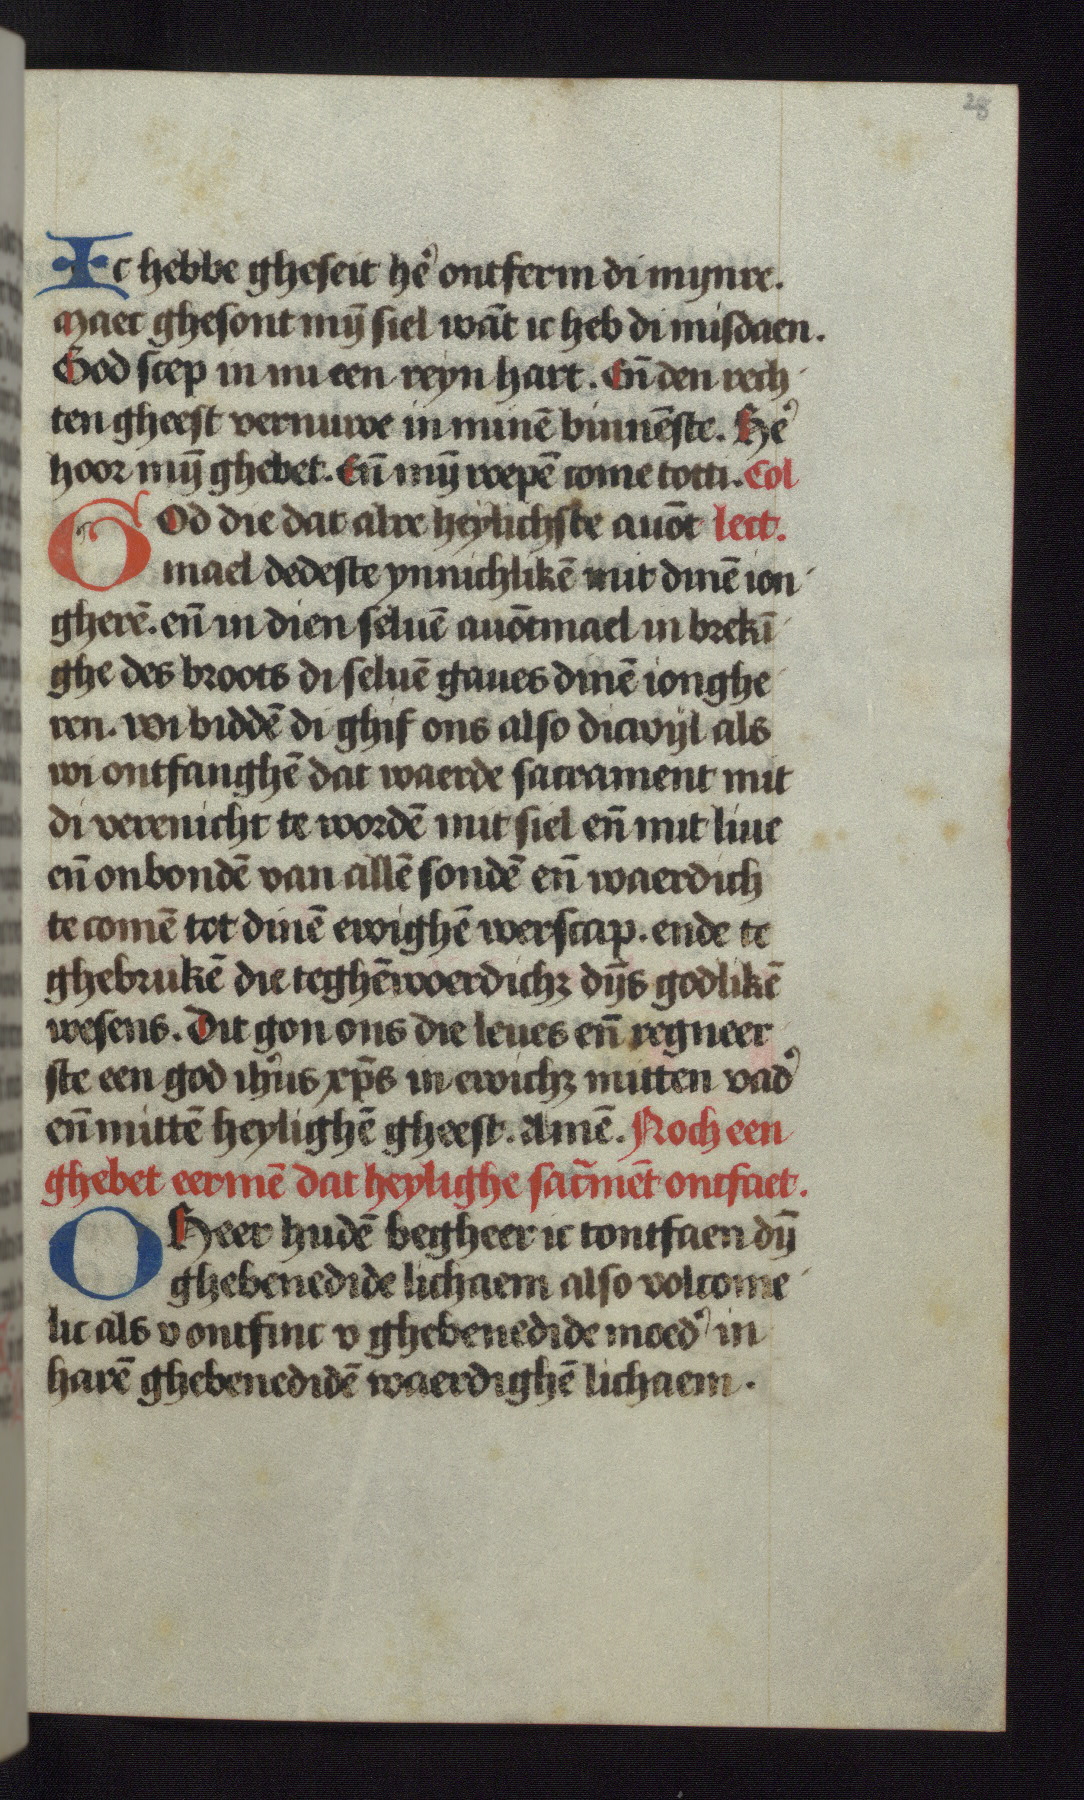 28
Ic hebbe gheseit he᷑ ontferm di mynre.
Maec ghesont mȳ siel wāt ic heb di misdaen.
God scep in mi een reyn hart. Eñ den rech
ten gheest vernuwe in minē binnēste. He᷑
hoor mȳ ghebet. Eñ mȳ roepē come totti. Col
God die dat alre heylichste auōt lect.
mael dedeste ynnichlikē mit dinē ion
gherē. eñ in dien seluē auōtmael in brekī
ghe des broots di seluē gaues dinē ionghe
ren. wi biddē di ghif ons also dicwijl als
wi ontfanghē dat waerde sacrament mit
di verenicht te wordē mit siel eñ mit liue
eñ onbondē van allē sondē eñ waerdich
te comē tot dinē ewighē werscap. ende te
ghebrukē die teghēwoerdichꝫ dȳs godlikē
wesens. Dit gon ons die leues eñ regneer
ste een god ihu᷑s xp̄s in ewichꝫ mitten vad᷑
eñ mittē heylighē gheest. Amē. Noch een
ghebet eermē dat heylighe sac̄mēt ontfaet.
O Heer hudē begheer ic tontfaen dȳ
ghebenedide lichaem also volcome
lic als v ontfinc v ghebenedide moed᷑ in
harē ghebenedidē waerdighē lichaem.